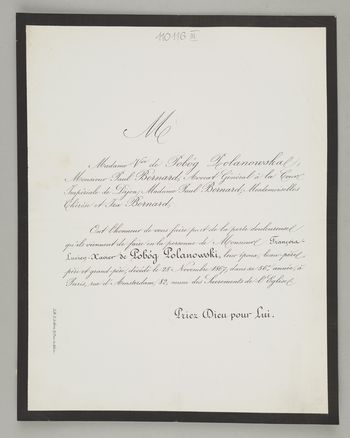 110116 III
M
Madame Vve de Pobóg Polanowska,
Monsieur Paul Bernard, Avocat Général à la Cour
Impériale de Dijon, Madame Paul Bernard, Mesdemoiselles
Thérèse et Bernard.
Ont l'honneur de vous faire part de la perte douloureuse
qu'ils viennent de faire en la personne de Monsieur François-
Xavier de Pobóg Polanowski, leur époux, beau-père,
père et grand-père, décédé le 28 Novembre 1867, dans sa 86e année, à
Paris, rue d'Amsterdam, 82, muni des Sacrements de l'Eglise.
Priez Dieu pour Lui.